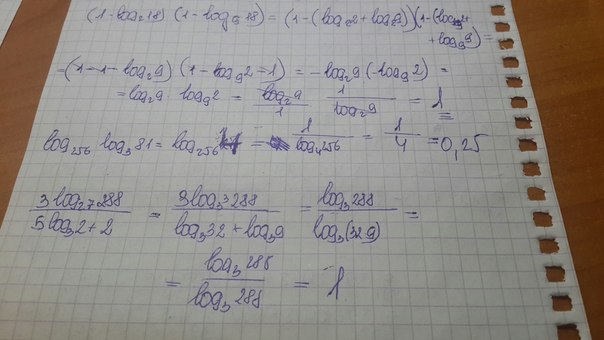 (1 - log₂18) (1 - log₉18) = (1 - (log₂2 + log₂9)) (1 - (log₉2 + log₉9) =
- (1 - 1 - log₂9) (1 - log₉2 - 1) = - log₂9 (- log₉2) =
= log₂9 · log₉2 = log₂9/1 · 1/log₂9 = 1
log₂₅₆ log₃81 = log₂₅₆4 = 1/log₄256 = 1/4 = 0,25
3log₂₇288/5log₃2 + 2 = 3log₃³288/log₃32 + log₃9 = log₃288/log₃(32 9) =
= log₃288/log₃288 = 1